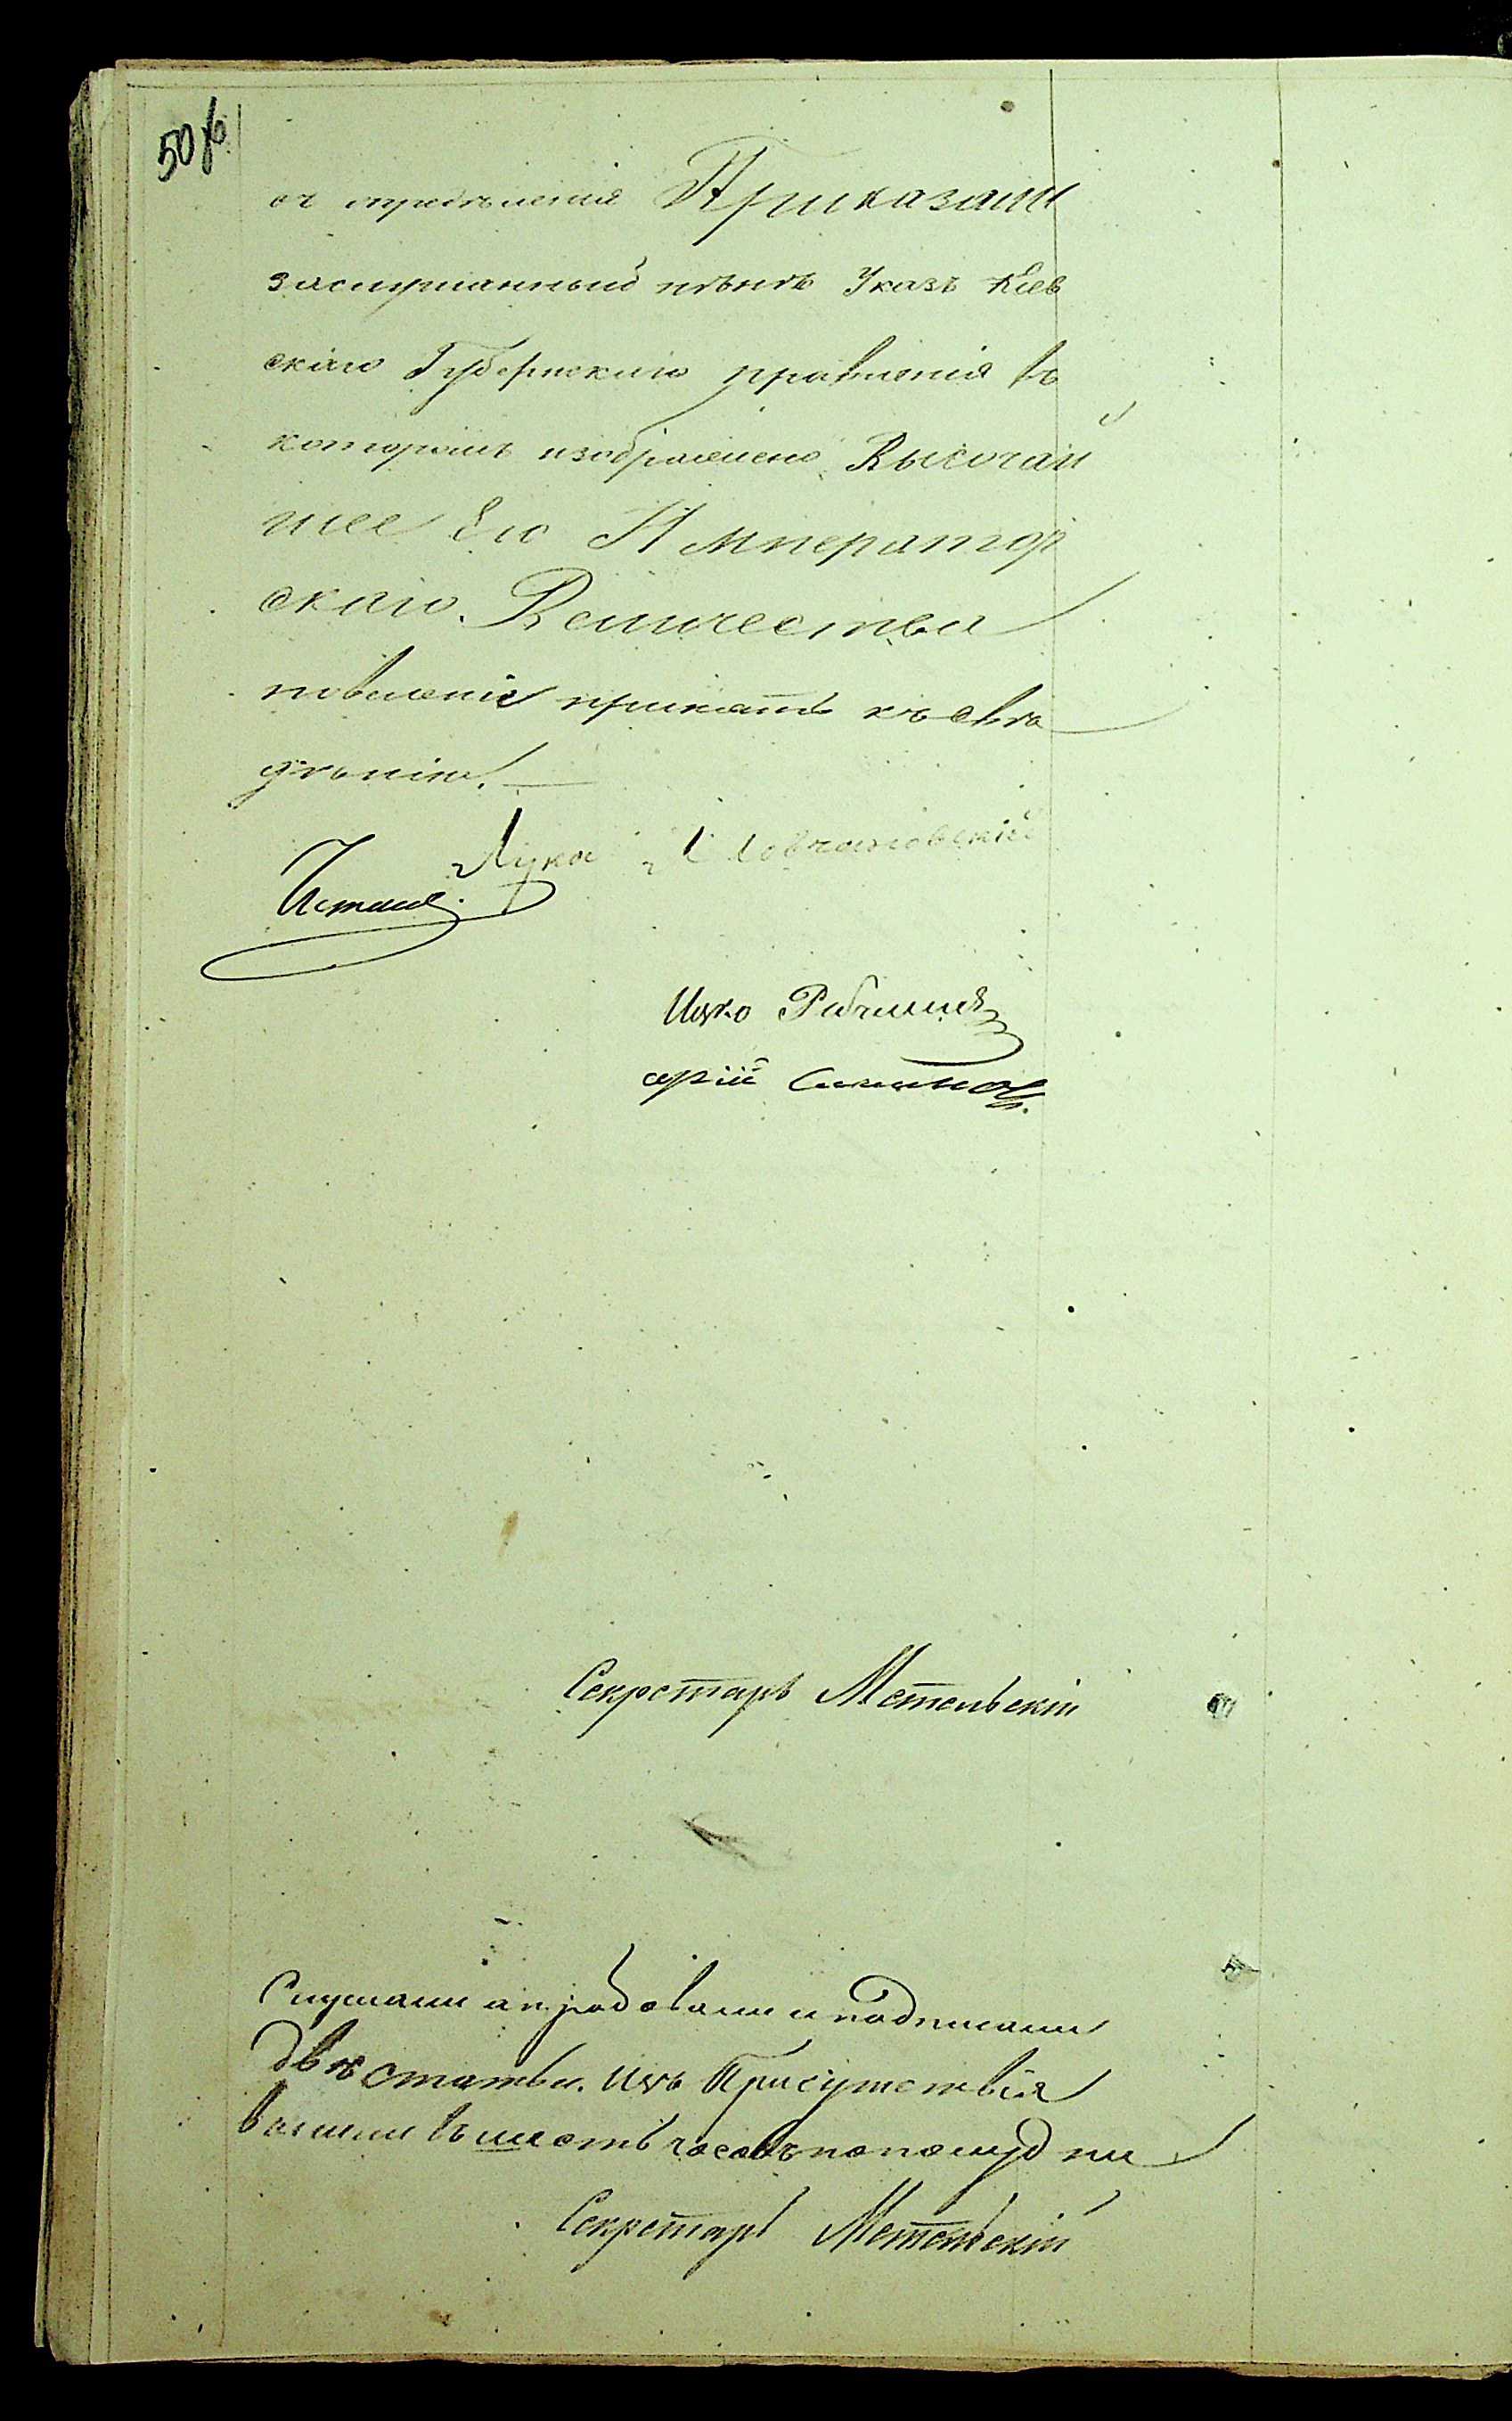 50 об
опредѣленія Приказали
заслушанный нынѣ Указъ Кіев
скаго Губернскаго правленія въ
которомъ изображено Высочай
шее Его Император
скаго Величества
повеленіе принять къ свѣ
дѣнію.
Лука Ловчановскій
Ицко
Секретарь Метельскій
Слушали апробовали и подписали
двѣ статьи. Изъ Присутствія
вышли въ шесть часовъ пополуд ни
Секретарь Метельскій